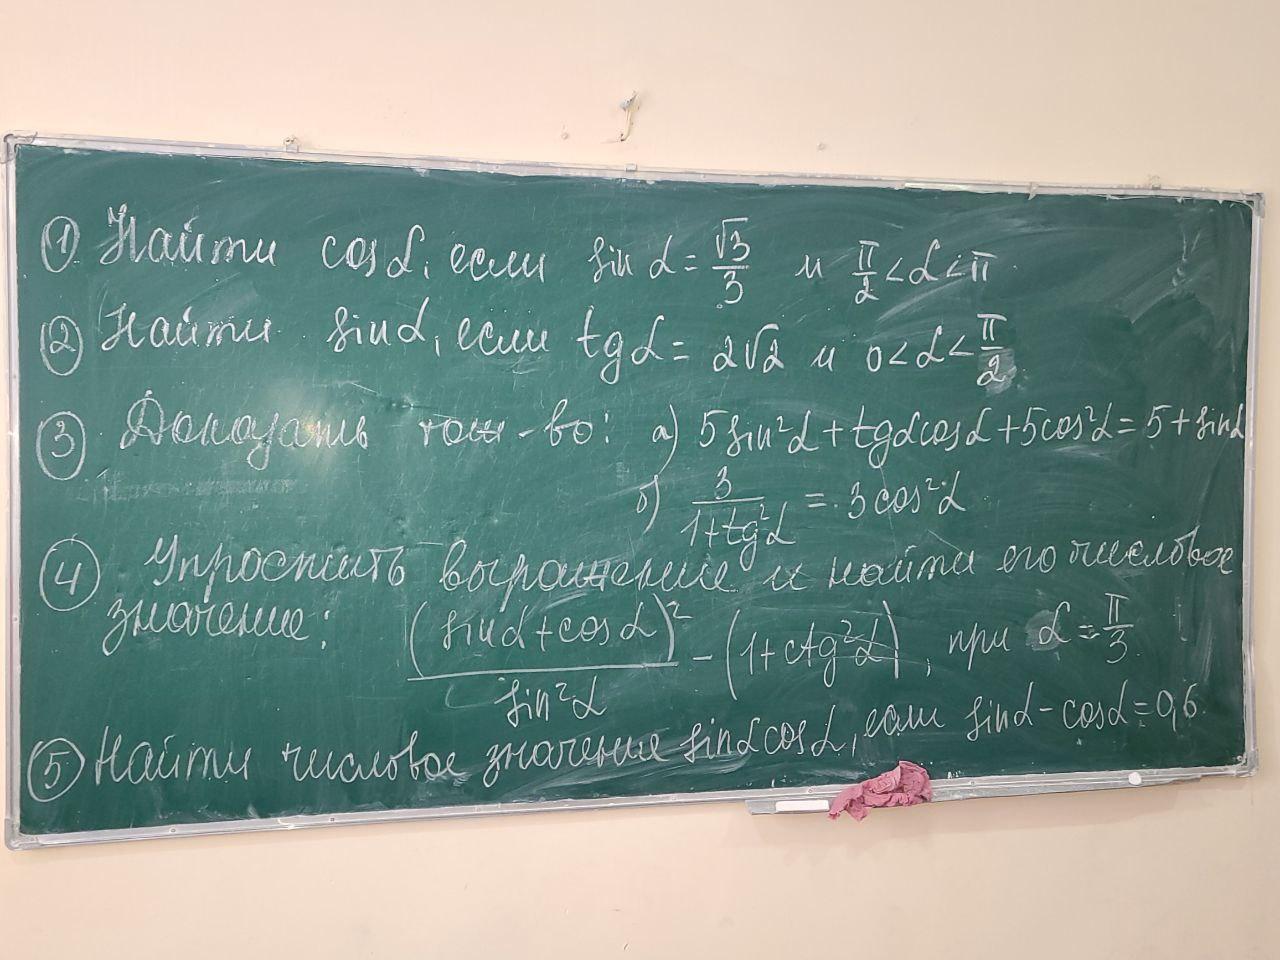 ① Найти cosα, если sin α = √3/3 и π/2 < α < π
② Найти sinα, если tgα = 2√2 и 0 < α < π/2
③ Доказать тож-во: а) 5sin²α + tgαcosα + 5cos²α = 5 + sinα
б) 3/(1+tg²α) = 3cos²α
④ Упростить выражение и найти его числовое
значение: (sinα + cosα)²/sin²α - (1 + ctg²α), при α = π/3.
⑤ Найти числовое значение sinαcosα, если sinα - cosα = 0,6.